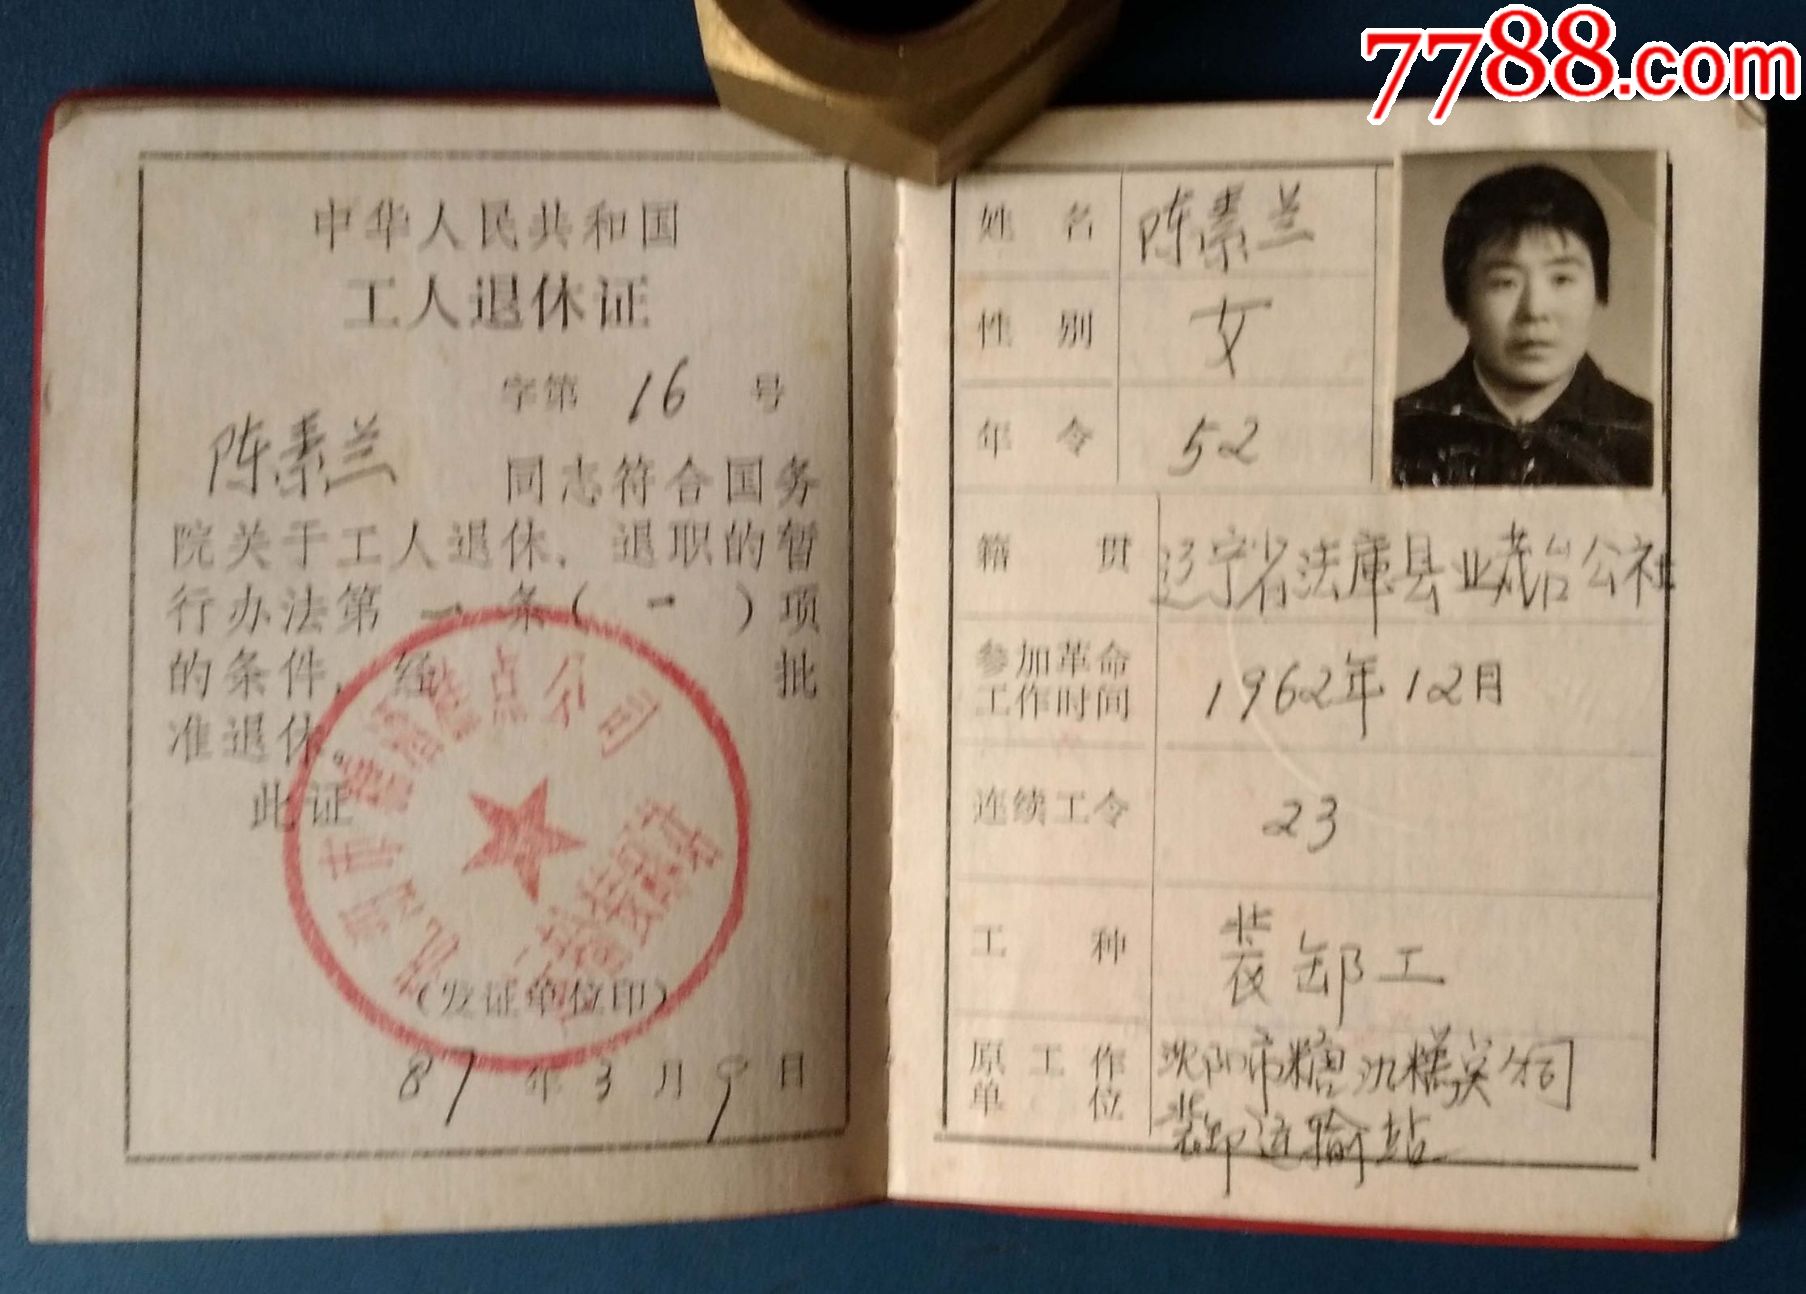 7788.com
中华人民共和国
工人退休证
字第 16 号
陈素兰 同志符合国务
院关于工人退休、退职的暂
行办法第 一 条( 一 )项
的条件，经 批
准退休。
此证
(发证单位印)
87年3月9日
姓名 陈素兰
性别 女
年令 52
籍贯 辽宁省法库县业茂台公社
参加革命
工作时间 1962年12月
连续工令 23
工种 装卸工
原工作
单位 沈阳市糖酒糕点公司
装卸运输站
沈阳市糖酒糕点公司
装卸运输站